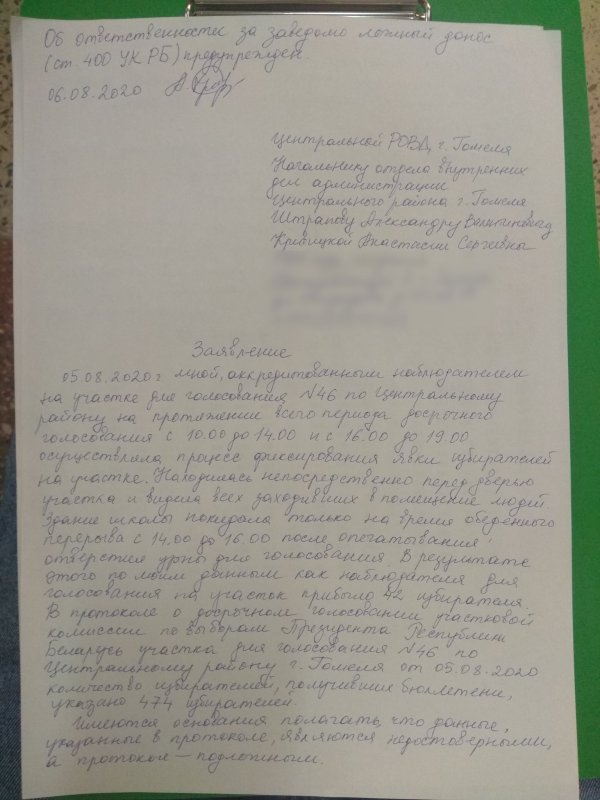 Об ответственности за заведомо ложный донос
(ст. 400 УК РБ) предупрежден
06.08.2020
Центральной РОВД, г. Гомеля
Начальнику отдела внутренних
дел администрации
Центрального района г. Гомеля
Штрапову Александру Валентиновичу
Кривицкой Анастасии Сергеевны
Заявление
05.08.2020 г. мной, аккредитованным наблюдателем
на участке для голосования N46 по Центральному
району на протяжении всего периода досрочного
голосования с 10.00 до 14.00 и с 16.00 до 19.00
осуществляла процесс фиксирования явки избирателей
на участке. Находилась непосредственно перед дверью
участка и видела всех заходивших в помещение людей.
Здание школы покидала только на время обеденного
перерыва с 14.00 до 16.00 после опечатывания
отверстия урны для голосования. В результате
этого по моим данным как наблюдателя для
голосования на участок прибыло 42 избирателя.
В протоколе о досрочном голосовании участковой
комиссии по выборам Президента Республики
Беларусь участка для голосования N46 по
Центральному району г. Гомеля от 05.08.2020
количество избирателей, получивших бюллетени,
указано 474 избирателей.
Имеются основания полагать, что данные,
указанные в протоколе, являются недостоверными,
а протокол — подложным.